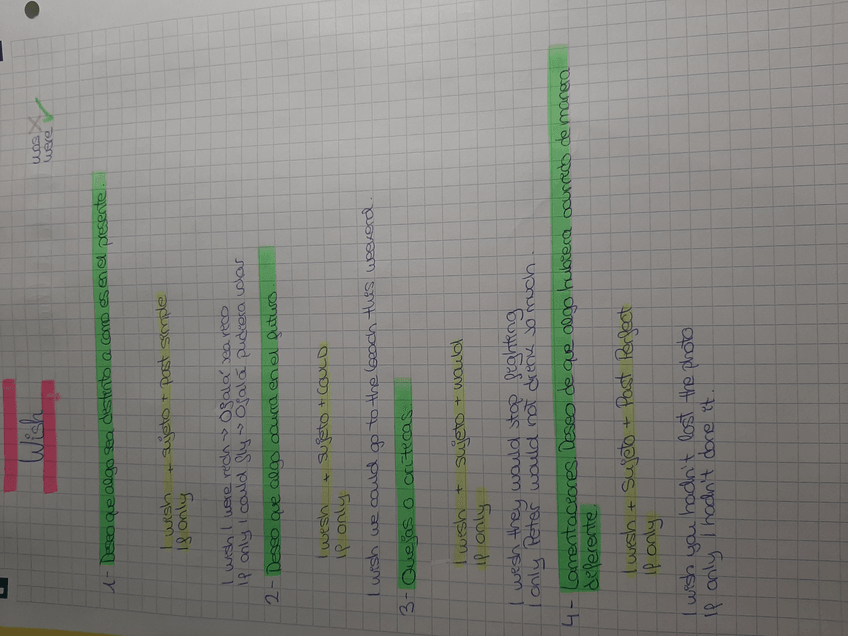 Wish
was X
were ✓
1- Deseo que algo sea distinto a como es en el presente.
I wish + sujeto + past simple
If only
I wish I were rich → Ojalá sea rico
If only I could fly → Ojalá pudiera volar
2- Deseo que algo ocurra en el futuro
I wish + sujeto + could
If only
I wish we could go to the beach this weekend.
3- Quejas o críticas
I wish + sujeto + would
If only
I wish they would stop fighting
I only Peter would not drink so much..
4- Lamentaciones. Deseo de que algo hubiera ocurrido de manera
diferente
I wish + sujeto + Past Perfect
If only
I wish you hadn't lost the photo
If only I hadn't done it.